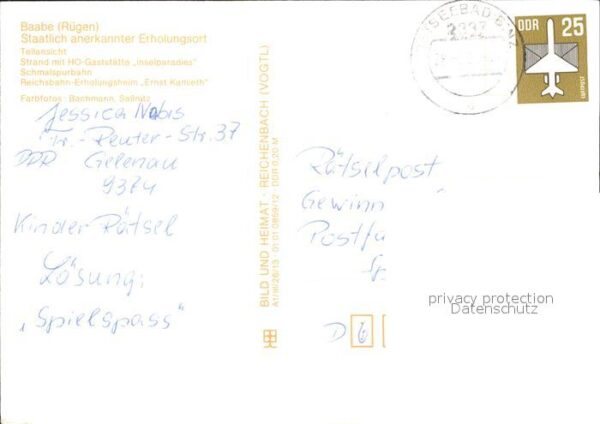 Baabe (Rügen)
Staatlich anerkannter Erholungsort
Teilansicht
Strand mit HO-Gaststätte „Inselparadies"
Schmalspurbahn
Reichsbahn-Erholungsheim „Ernst Kamieth"
Farbfotos: Bachmann, Saßnitz
Jessica Nobis
Fr.-Reuter-Str. 37
DDR Gelenau
9374
Kinder Rätsel
Lösung:
„Spielspass"
BILD UND HEIMAT · REICHENBACH (VOGTL)
A1/III/26/13 · 01 01 0859/12 · DDR 0,20 M
OSTSEEBAD
2337
DDR 25
LUFTPOST
Rätselpost
Gewinn
Postfa
D 6
privacy protection
Datenschutz